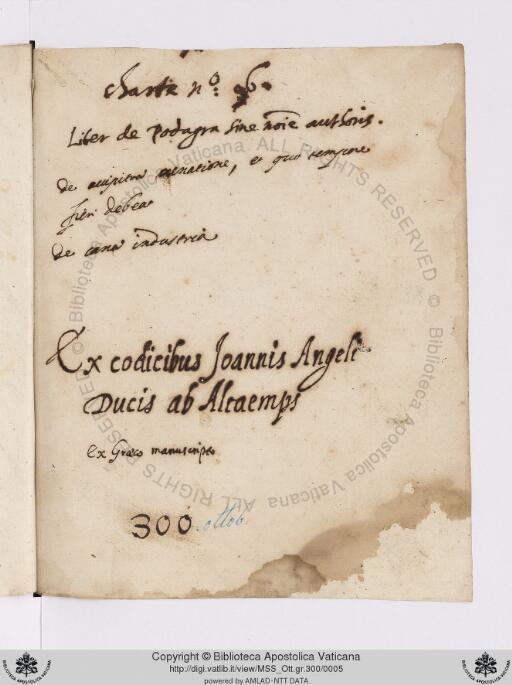 Charte nº: 96.
Liber de Podagra sine noīe authoris.
de accipitru venatione, et quo tempore
fieri debeat
de canū industria
Ex codicibus Joannis Angeli
Ducis ab Altaemps
Ex Græco manuscripto
300 ottob.
© Biblioteca Apostolica Vaticana ALL RIGHTS RESERVED
© Biblioteca Apostolica Vaticana ALL RIGHTS RESERVED
Copyright © Biblioteca Apostolica Vaticana
http://digi.vatlib.it/view/MSS_Ott.gr.300/0005
powered by AMLAD-NTT DATA